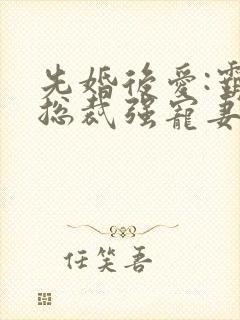 先婚後愛:
總裁强寵妻
任笑吾